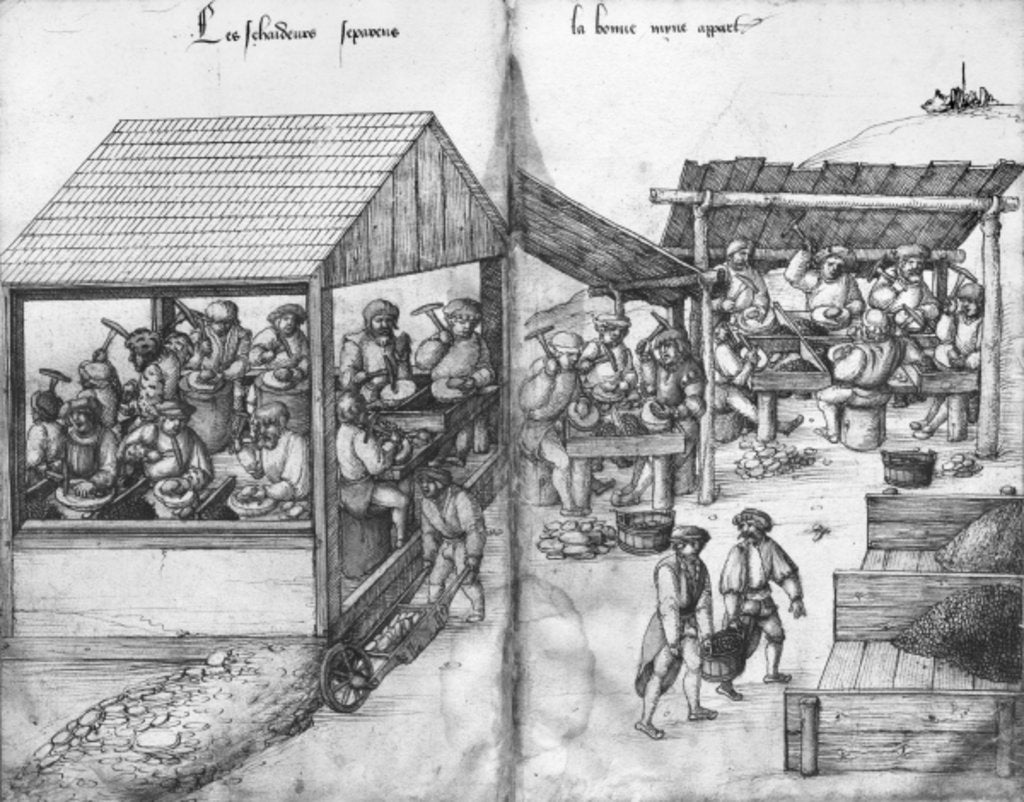 Les schaideurs separens la bonne myne appart